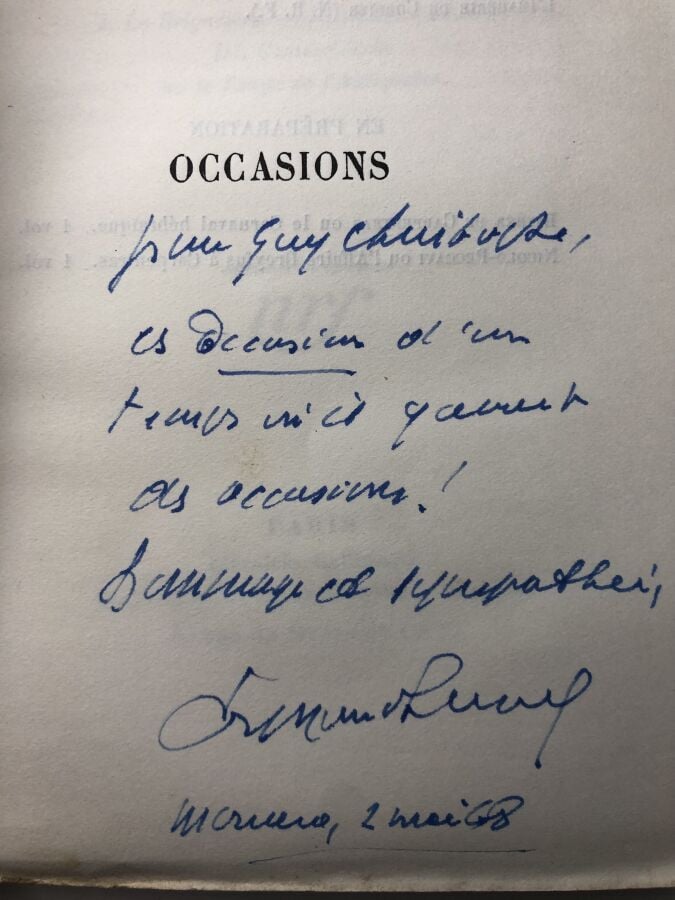 OCCASIONS
pour Guy Christophe,
ces Occasions d'un
temps où il y avait
des occasions !
Hommage de sympathie,
Armand Lunel
Monaco, 2 mai 68